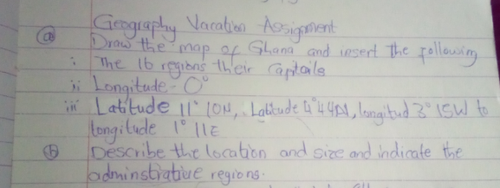 Geography Vacation Assignment
(a) Draw the map of Ghana and insert the following
i The 16 regions their Capitals
ii Longitude - 0°
iii Latitude 11° 10N, Latitude 4° 44N, longitud 3° 15W to
longitude 1° 11E
(b) Describe the location and size and indicate the
adminstrative regions.